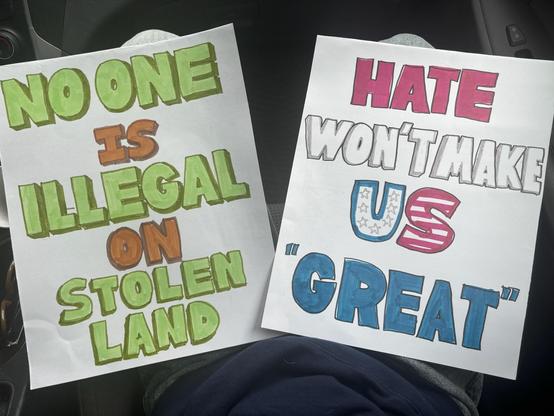 NO ONE
IS
ILLEGAL
ON
STOLEN
LAND
HATE
WON'T MAKE
US
"GREAT"